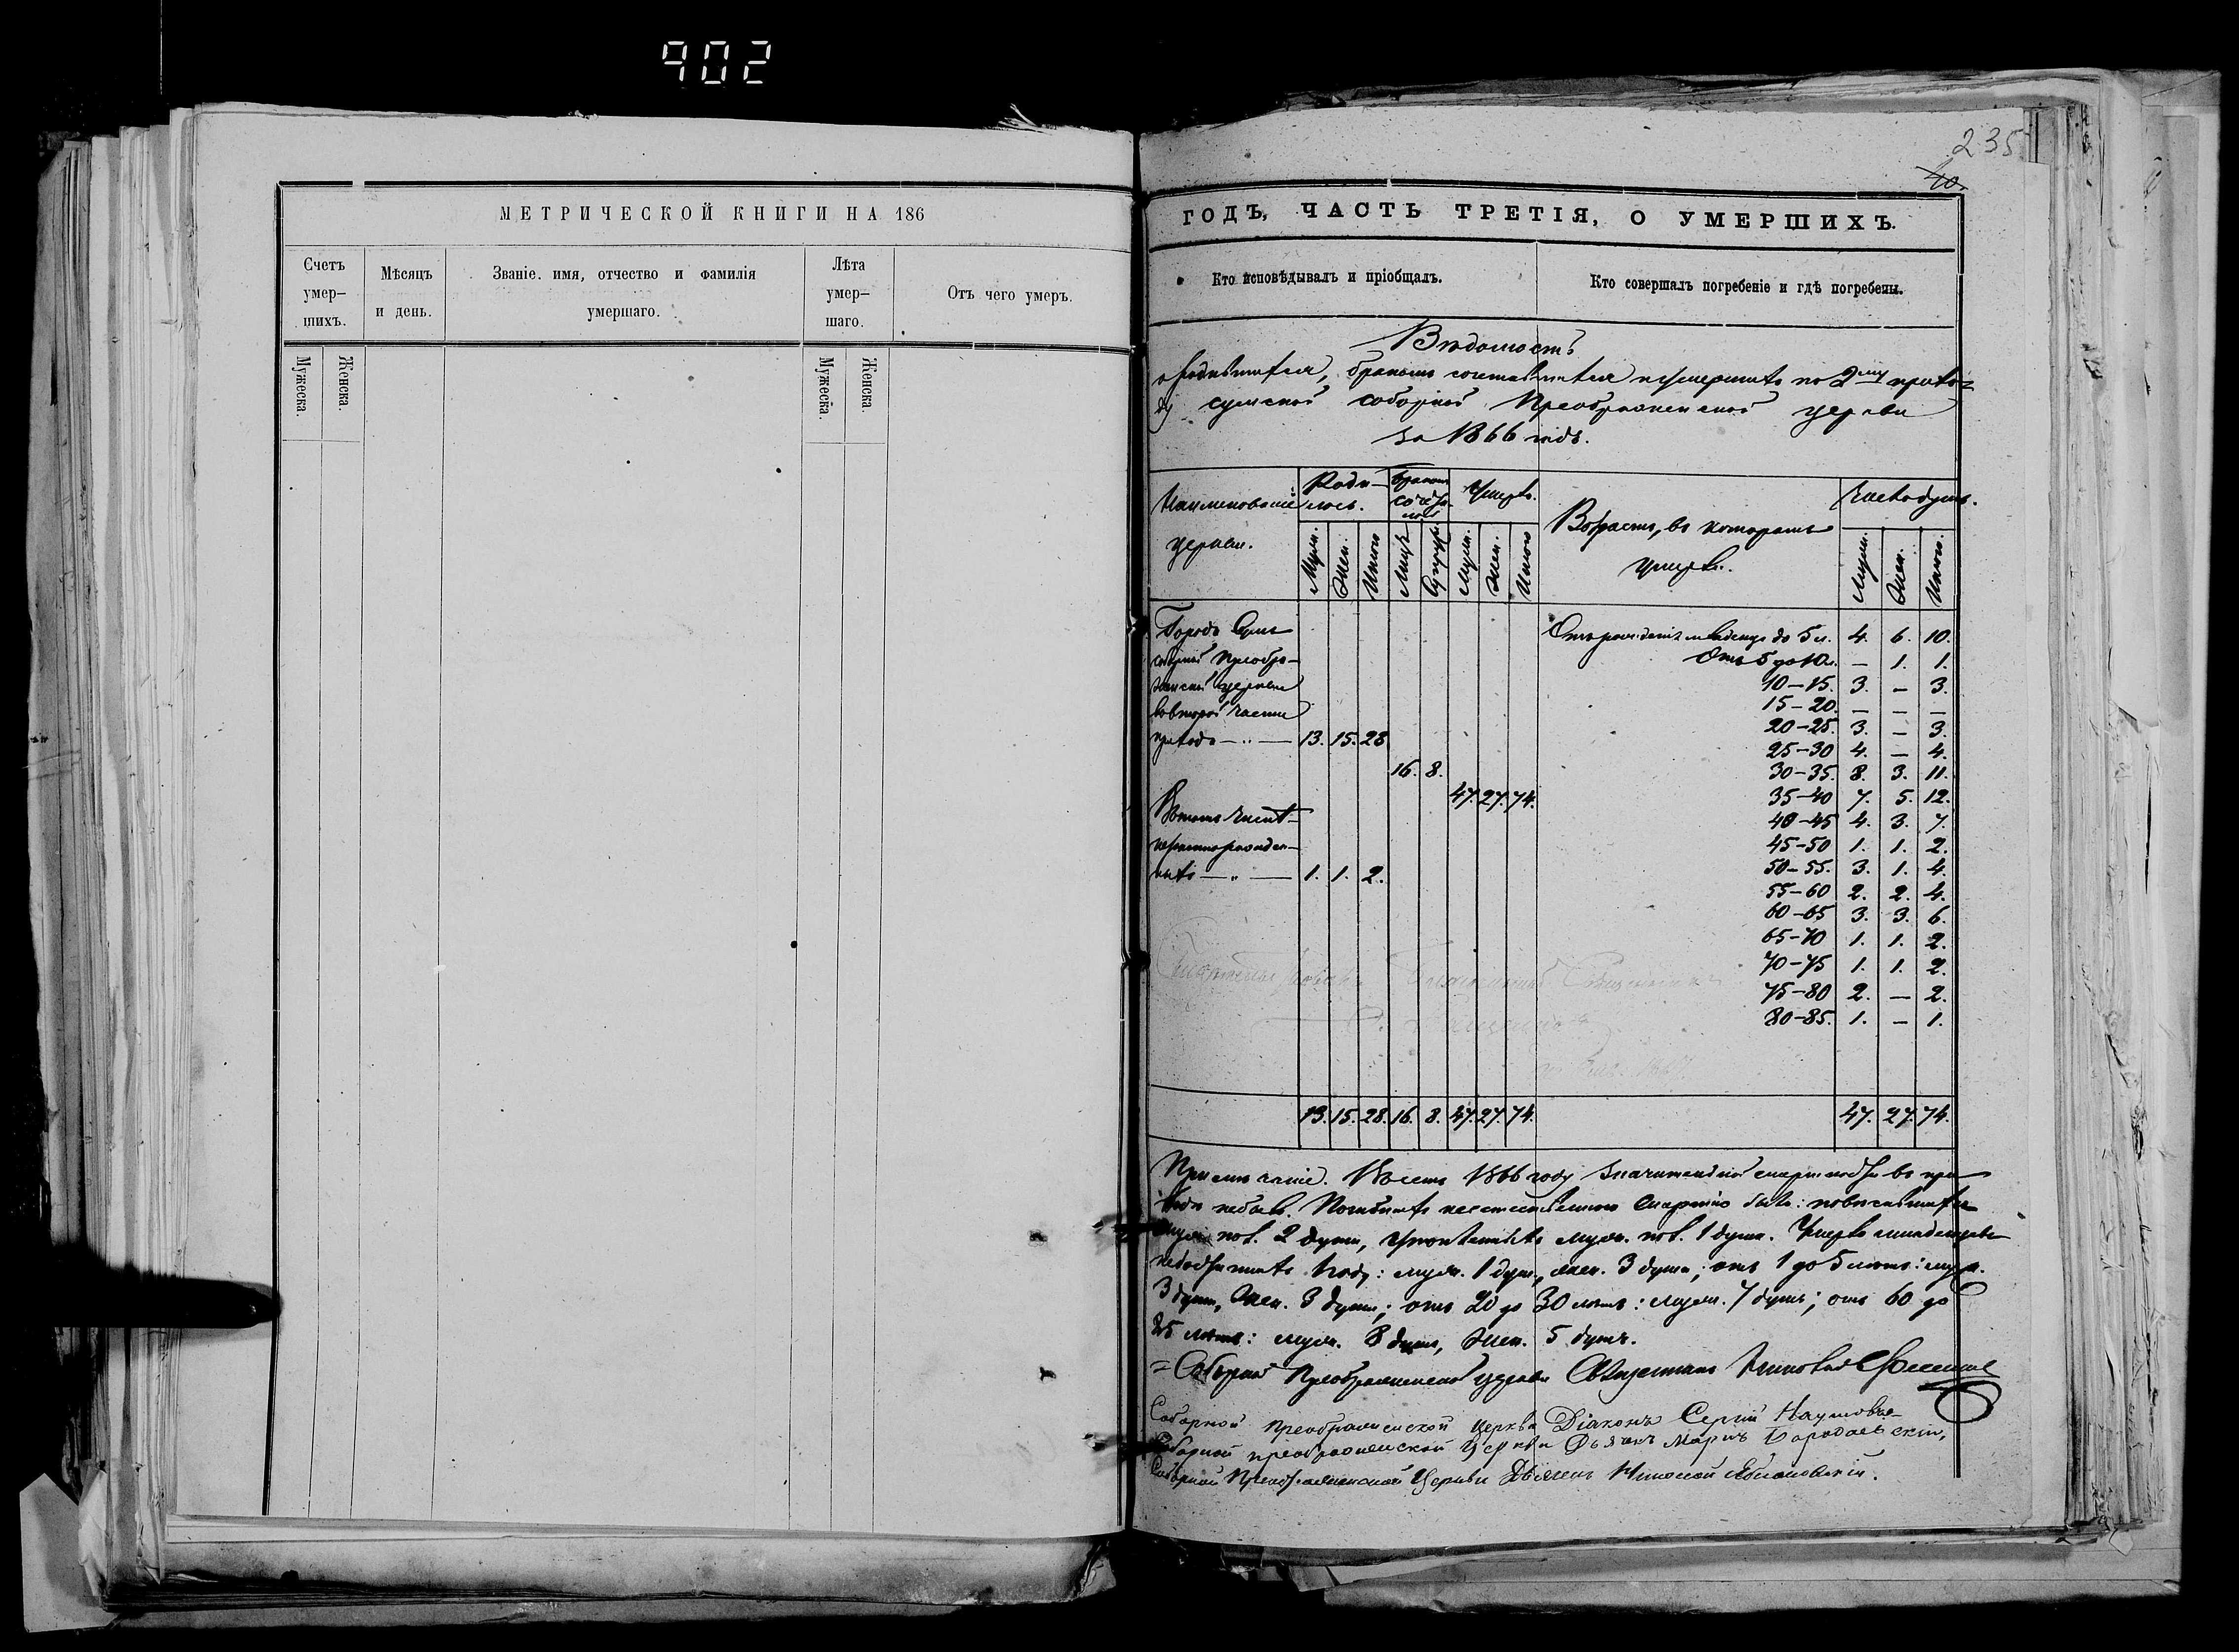 902
235
40.
МЕТРИЧЕСКОЙ КНИГИ НА 186
Счетъ умер-шихъ.
Мѣсяцъ и день.
Званіе, имя, отчество и фамилія умершаго.
Лѣта умер-шаго.
Отъ чего умеръ.
Мужеска.
Женска.
Мужеска.
Женска.
ГОДЪ, ЧАСТЬ ТРЕТІЯ, О УМЕРШИХЪ.
Кто исповѣдывалъ и пріобщалъ.
Кто совершалъ погребеніе и гдѣ погребены.
Вѣдомость
о родившихся, бракомъ сочетавшихся и умершихъ по 2му прихо=
ду сумской соборной Преображенской церкви
за 1866 годъ.
Наименованіе церкви.
Роди-лось.
Бракомъ сочета-лось
Умерло.
Возрастъ, въ которомъ умерли.
Число душъ.
Муж. Жен. Итого Лицъ Супруж. Муж. Жен. Итого
Муж. Жен. Итого.
Городъ Сумы
соборной Преобра-
женской церкви
во второй части
прихода — „ — 13. 15. 28.
16. 8.
47. 27. 74.
Въ томъ числѣ
незаконнорожден-
ныхъ — „ — 1. 1. 2.
Отъ рожденія младенца до 5 л. 4. 6. 10.
Отъ 5 до 10 л. — 1. 1.
10–15. 3. — 3.
15–20. — — —
20–25. 3. — 3.
25–30 4. — 4.
30–35. 8. 3. 11.
35–40 7. 5. 12.
40–45 4. 3. 7.
45–50 1. 1. 2.
50–55. 3. 1. 4.
55–60 2. 2. 4.
60–65 3. 3. 6.
65–70 1. 1. 2.
70–75 1. 1. 2.
75–80 2. — 2.
80–85. 1. — 1.
13. 15. 28. 16. 8. 47. 27. 74. 47. 27. 74.
Примѣчаніе. Въ семъ 1866 году значительной смертности въ при-
ходѣ не было. Погибшихъ неестественною смертію было: повѣсившихся
муж. пол. 2 души, утонувшихъ муж. пол. 1 душа. Умерло младенцевъ
недостигшихъ году: муж. 1 душ., жен. 3 души; отъ 1 до 5 лѣтъ: муж.
3 души, жен. 3 души; отъ 20 до 30 лѣтъ: муж. 7 душъ; отъ 60 до
85 лѣтъ: муж. 8 душъ, жен. 5 душъ.
= Соборной Преображенской церкви Священникъ
Соборной преображенской церкви Діаконъ Сергій Наумовъ
Соборной преображенской церкви Дьячекъ Маркъ
Соборной Преображенской Церкви Николай